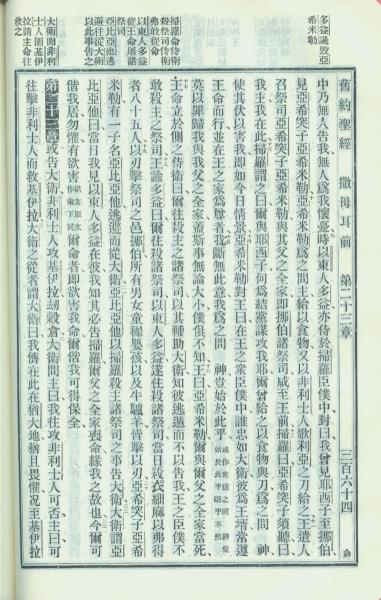 舊約聖經 撒母耳前 第二十三章 三百六十四
多益讒毀亞
希米勒
中乃無人告我無人為我懷憂時以東人多益亦侍於掃羅臣僕中對曰我曾見耶西子至挪伯
見亞希突子亞希米勒亞希米勒為之問主給以食物又以非利士人歌利亞之刀給之王遣人
召祭司亞希突子亞希米勒與其父之全家即挪伯諸祭司咸至王前掃羅曰亞希突子須聽曰
我主我在此掃羅謂之曰爾與耶西子何為結黨謀攻我耶爾曾給之以食物與刀為之問 神
使其伏以害我即如今日情景亞希米勒對王曰在王之眾臣僕中誰忠如大衛彼為王壻常遵
王命而行並在王之家為尊者我斷無此意我為之問 神豈始於此乎
莫以罪歸我與我父之全家蓋斯事無論大小僕俱不知王曰亞希米勒爾與爾父之全家當死
王命立於側之侍衛曰往殺主之諸祭司以其輔助大衛知彼逃遁而不以告我王之臣僕不
敢殺主之祭司王諭多益曰爾往殺諸祭司以東人多益遂往殺諸祭司當日殺衣細麻以弗得
者八十五人以刃擊祭司之邑挪伯所有男女童稚嬰孩以及牛驢羊皆擊以刃亞希突子亞希
米勒有一子名亞比亞他逃避而從大衛亞比亞他以掃羅殺主諸祭司之事告大衛大衛謂亞
比亞他曰當日我見以東人多益在彼我知其必告掃羅爾父之全家喪命緣我之故也今爾可
偕我居勿懼惟欲害欲害原文作索下同爾命者即欲害我命爾偕我可得保全
第二十三章或告大衛非利士人攻基伊拉劫穀倉大衛問主曰我往攻非利士人可否主曰可
往擊非利士人而救基伊拉大衛之從者謂大衛曰我儕在此在猶大地猶且畏懼況至基伊拉
掃羅命侍衛
殺祭司侍衛
弗敢從命
以東人多益
從王命屠諸
祭司
亞比亞他逃
避往從大衛
以此事告之
大衛聞非利
士人圍基伊
拉諮主命往
救之